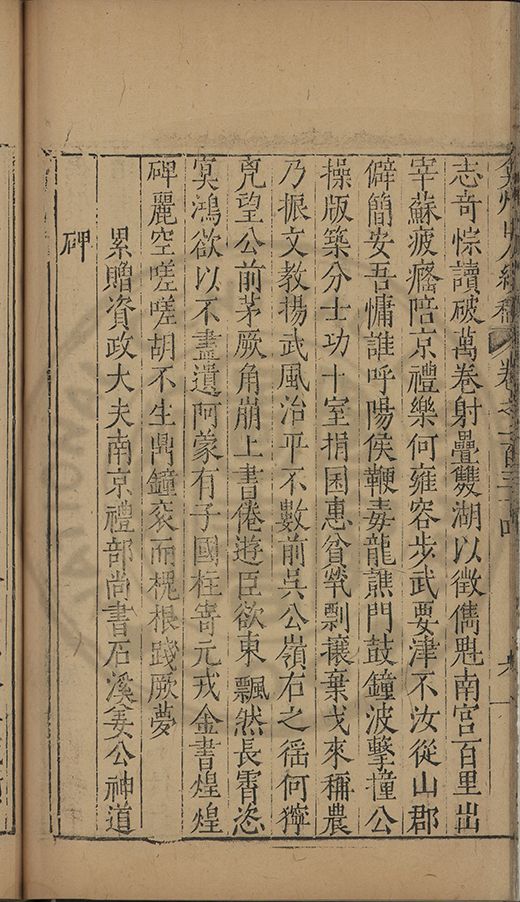 弇州山人續稿 卷之一百三十四 九
志奇悰讀破萬卷射疊雙湖以徵儁魁南宮百里出
宰蘇疲癃陪京禮樂何雍容步武要津不汝從山郡
僻簡安吾慵誰呼陽侯鞭毒龍譙門鼓鐘波擊撞公
操版築分士功十室捐困惠貧煢剽攘棄戈來稱農
乃振文教揚武風治平不數前吳公嶺右之徭何獰
兇望公前茅厥角崩上書倦遊臣欲東飄然長霄恣
寞鴻欲以不盡遺阿蒙有子國柱寄元戎金書煌煌
碑麗空嗟嗟胡不生鼎鐘衮而槐根踐厥夢
累贈資政大夫南京禮部尚書石溪姜公神道
碑